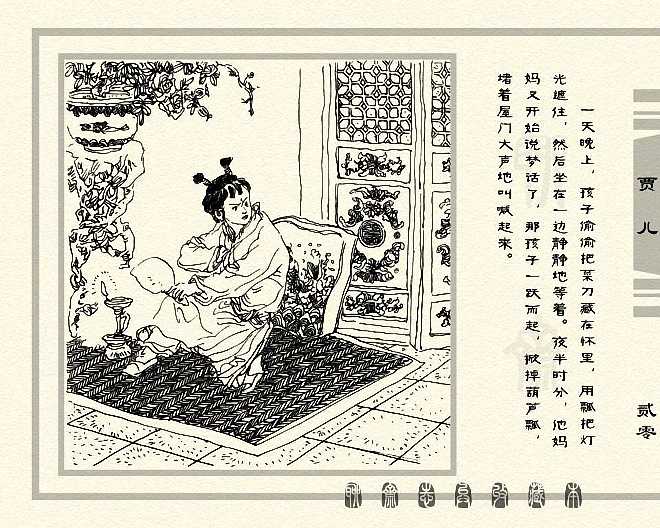 一天晚上，孩子偷偷把菜刀藏在怀里，用瓢把灯
光遮住，然后坐在一边静静地等着。夜半时分，他妈
妈又开始说梦话了，那孩子一跃而起，掀掉葫芦瓢，
堵着屋门大声地叫喊起来。
贾儿
贰零
聊斋志异收藏本